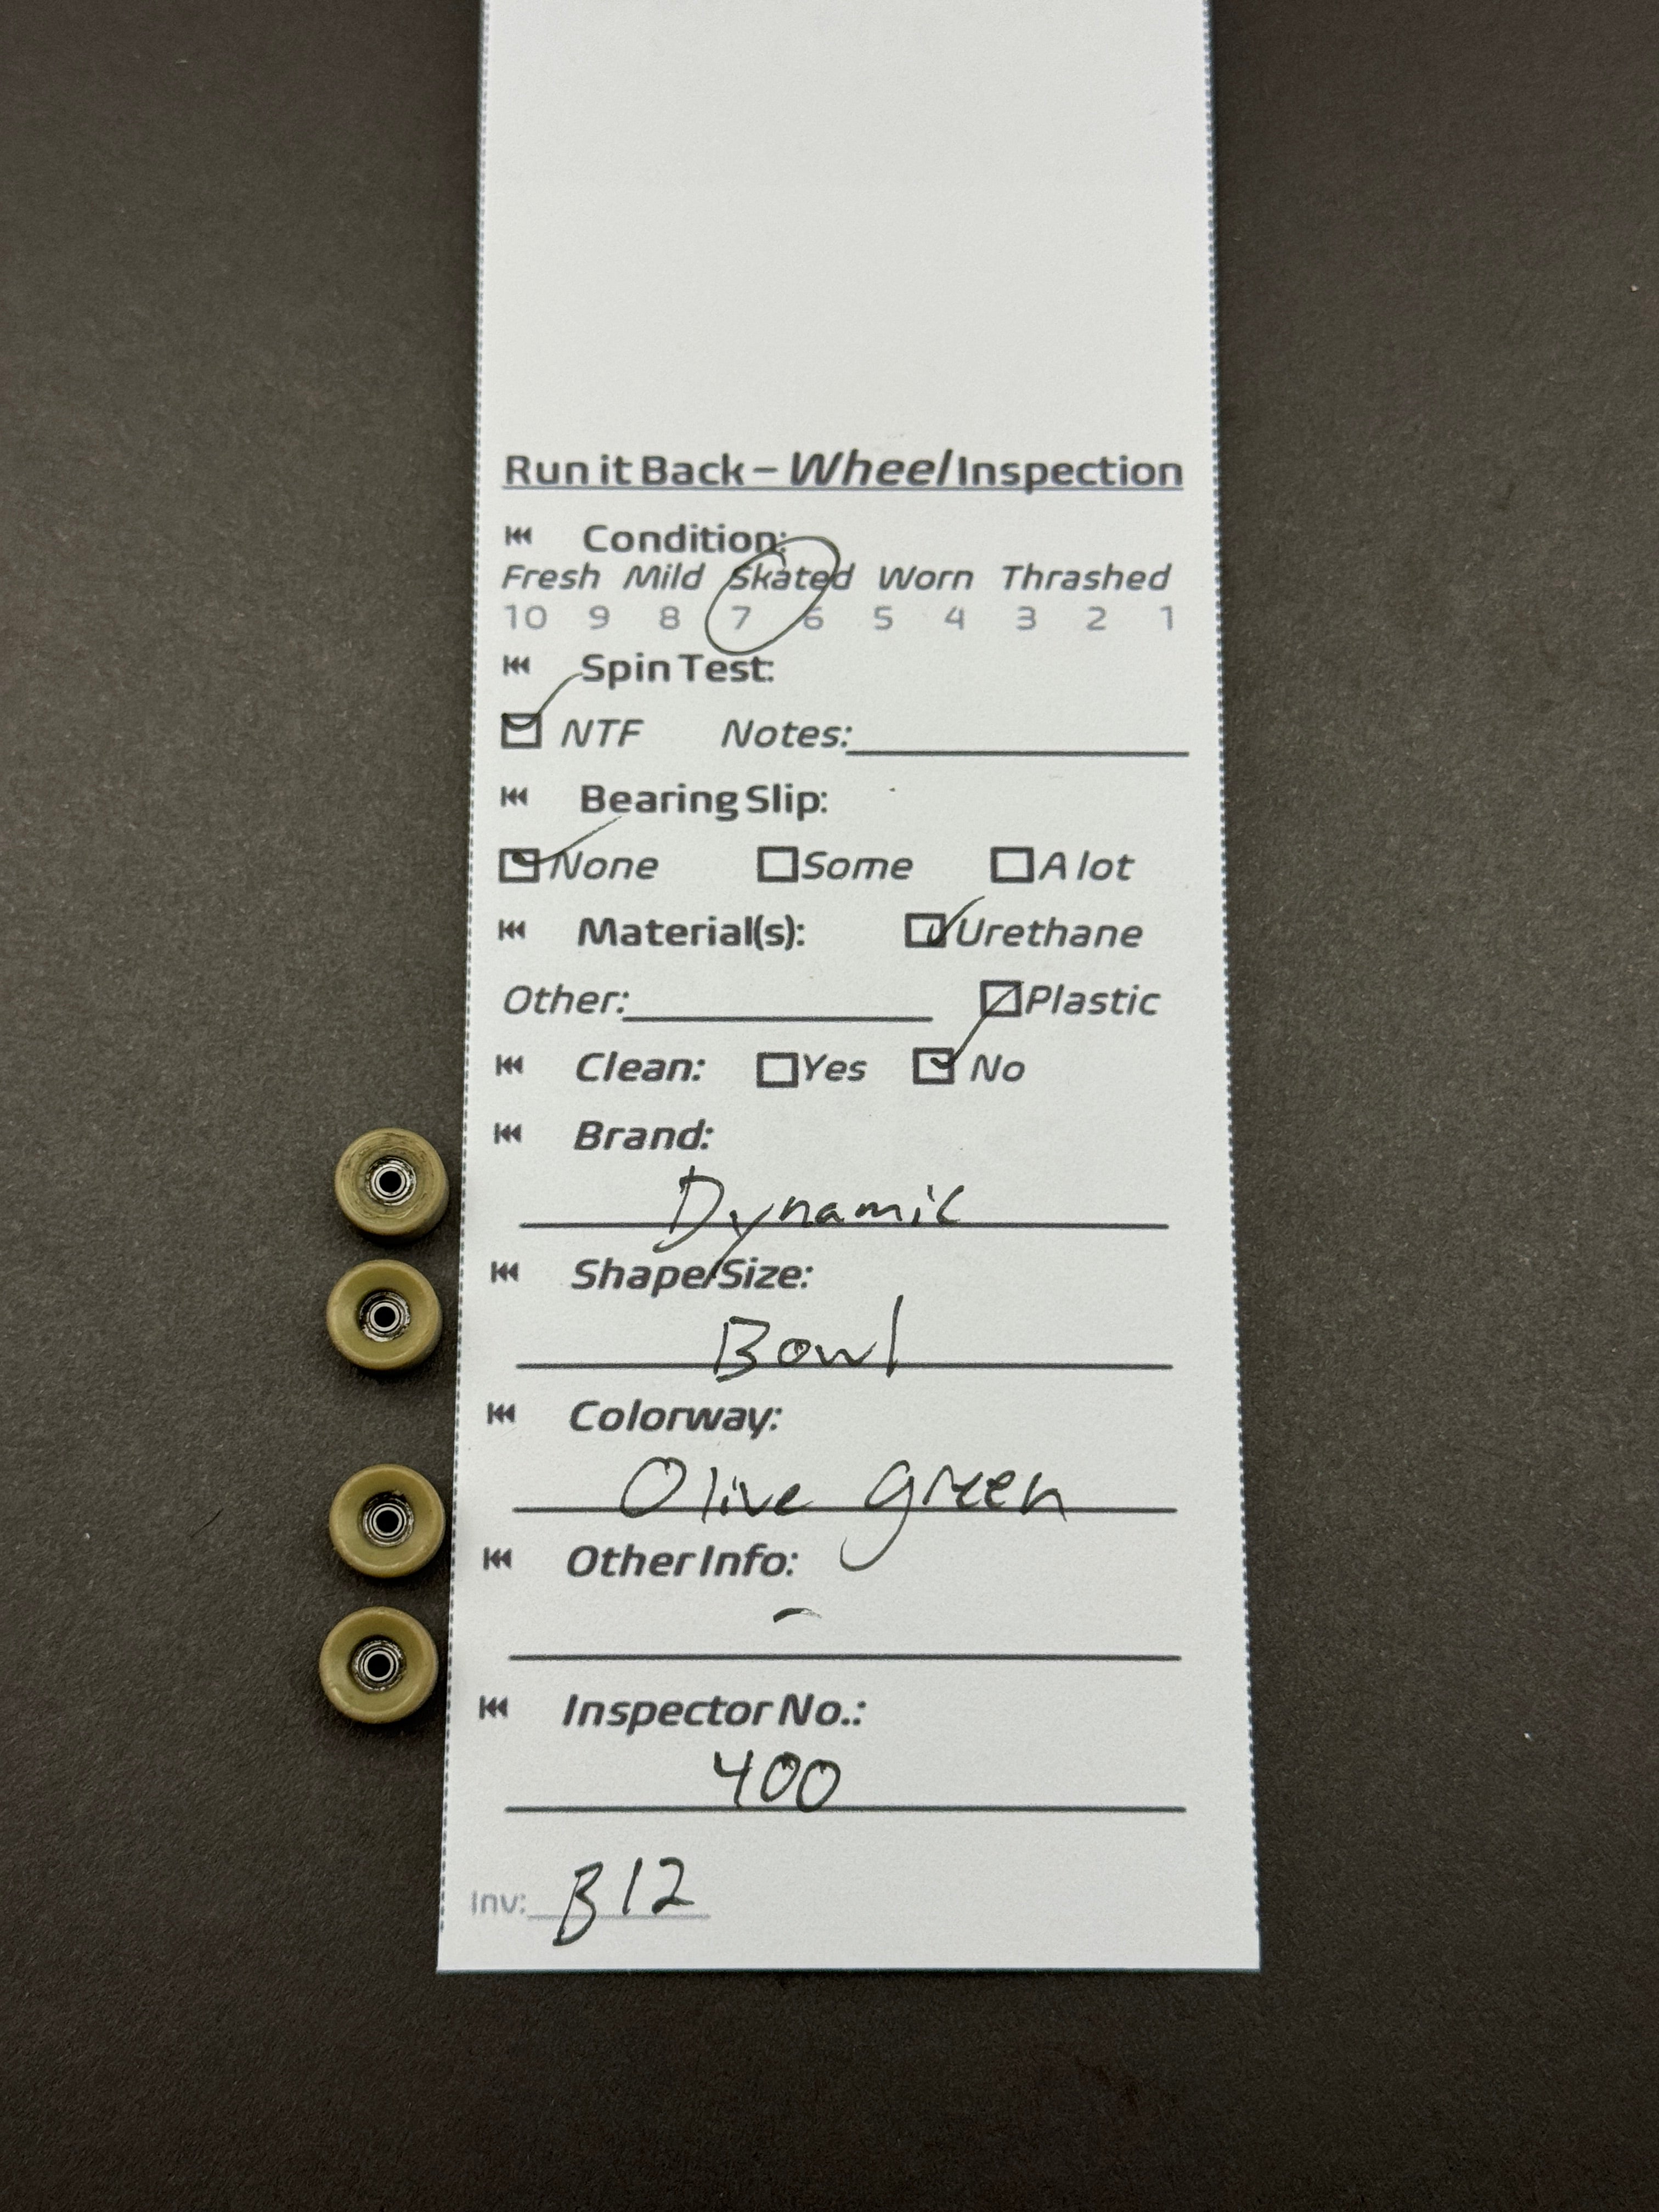 Run it Back – Wheel Inspection
Condition:
Fresh Mild Skated Worn Thrashed
10 9 8 7 6 5 4 3 2 1
Spin Test:
NTF Notes:
Bearing Slip:
None Some A lot
Material(s): Urethane
Other: Plastic
Clean: Yes No
Brand:
Dynamic
Shape/Size:
Bowl
Colorway:
Olive green
Other Info:
-
Inspector No.:
400
Inv: B12